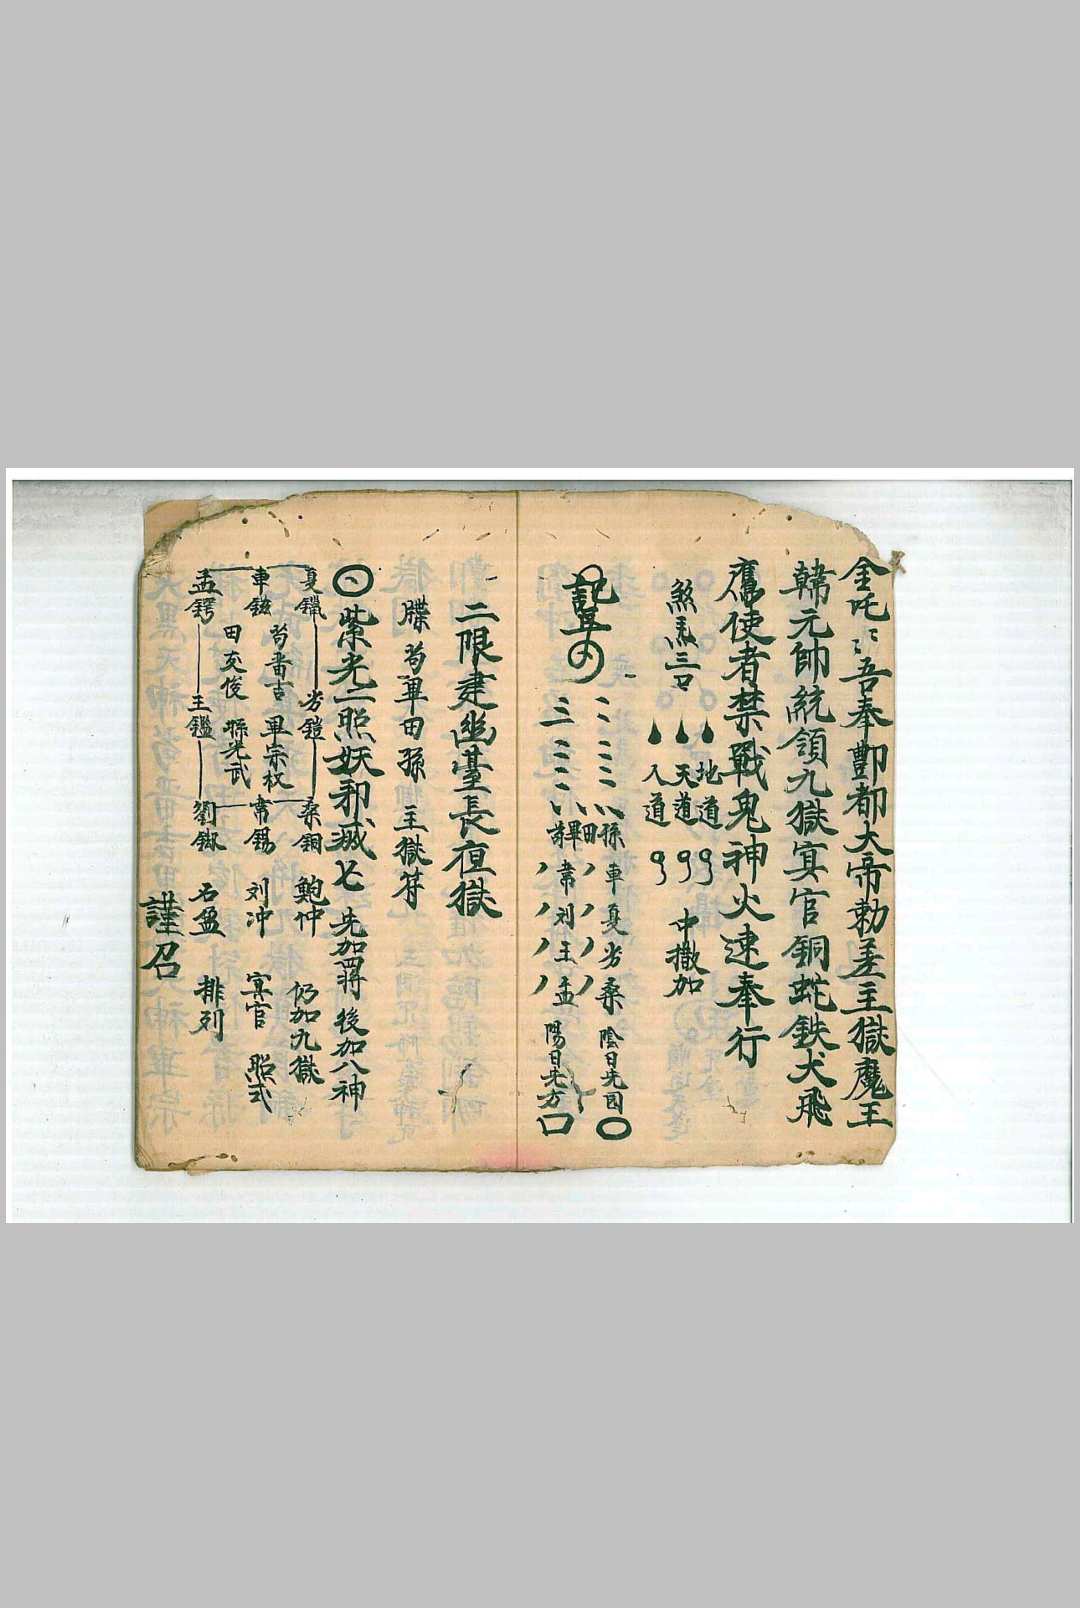 金吒〻吾奉酆都大帝勅差主獄魔王
韓元帥統領九獄冥官銅蛇鉄犬飛
鷹使者禁戰鬼神火速奉行
煞 三口 地道 天道 人道 中撒加
孫車夏劣桑 陰日先圓
韋刘王孟 陽日先方
二限建幽臺長夜獄
牒 苟畢田孫 主獄符
紫光一照妖邪滅亡 先加四將 後加八神
夏鑞 劣鎧 桑銅 鮑仲 仍加九獄
車鎡 苟畨吉 畢宗权 常錫 刘冲 冥官 照式
田交俊 孫光武
孟鍔 王鑑 劉鈘 石盈 排列
謹召